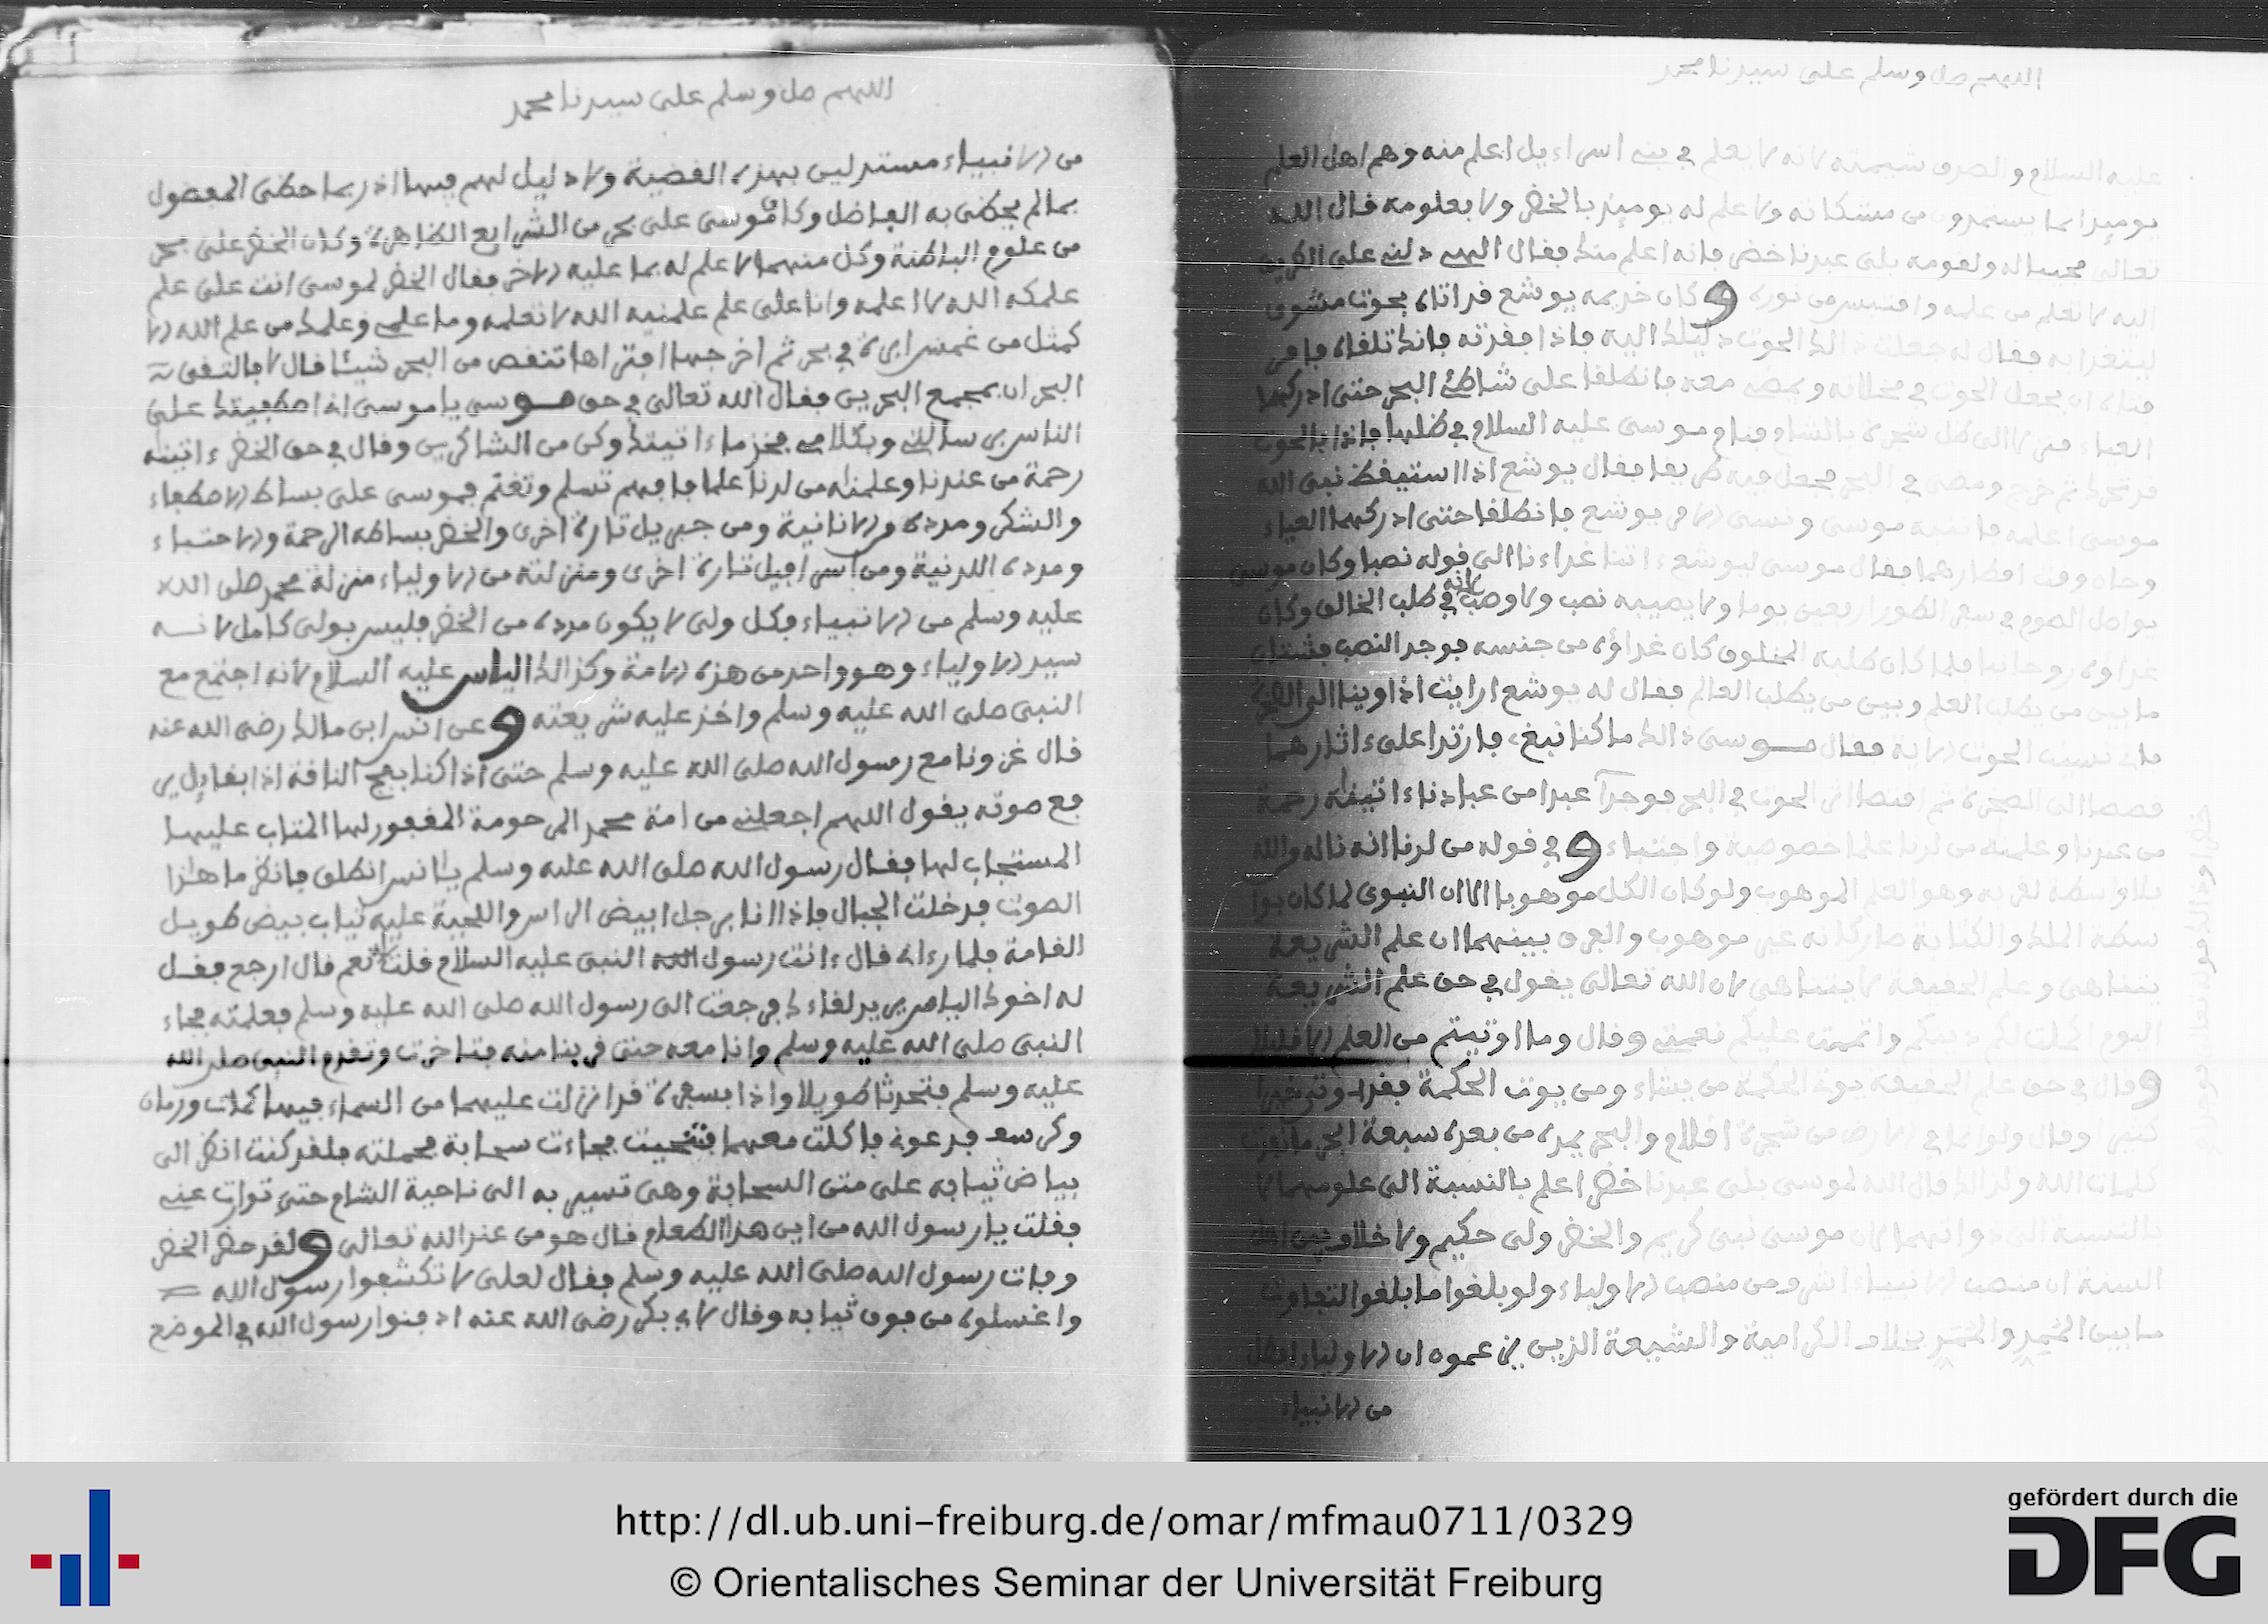 اللهم صل وسلم على سيدنا محمد
عليه السلام و الصرف شيمته لانه لا يعلم في بني اسراءيل اعلم منه وهم اهل العلم
يوميذ انما يستمدون من مشكاته ولا علم له يوميذ بالخضر ولا بعلومه فال الله
تعالى مجيبا له ولفومه بلى عبدنا خضر فانه اعلم منك ففال اللهم دلني على
اليه لاتعلم من علمه وافتبس من نوره وكان خديمه يوشع فد اتاه بحوت مشوي
ليتغدا به ففال له جعلت ذالك الحوت دليلك اليه فاذا ففدته فانك تلفاه فامر
فتاه ان يجعل الحوت في مخلاته ويمضي معه فانطلفا على شاطئ البحر حتى ادركهما
العياء فنزلا الى ظل شجرة بالشام فنام موسى عليه السلام في ظلها فاذا بالحوت
فد تحرك ثم خرج ومضى في البحر فجعل فيه طريفا ففال يوشع اذا استيفظ نبي الله
موسى اعلمه فانتبه موسى ونسى الامر يوشع فانطلفا حتى ادركهما العياء
وحان وفت افطارهما ففال موسى ليوشع ءاتنا غداءنا الى فوله نصبا وكان موسى
يواصل الصوم في سفر الطور اربعين يوما ولا يصيبه نصب ولا وصب لانه في طلب الخالق وكان
غداوه روحانيا فلما كان طلبه المخلوق كان غداؤه من جنسه فوجد النصب فشتان
ما بين من يطلب العلم وبين من يطلب العالم ففال له يوشع ارايت اذ اوينا الى الصخرة
فاني نسيت الحوت الاية ففال موسى ذالك ما كنا نبغ، فارتدا على ءاثارهما
فصصا الى الصخرة ثم افتصا اثر الحوت في البحر فوجدا عبدا من عبادنا ءاتيناه رحمة
من عندنا وعلمنه من لدنا علما خصوصية واجتباء وفي فوله من لدنا انه ناله والله
بلا واسطة لغيره وهو العلم الموهوب ولو كان الكل موهوبا الا ان النبوي لما كان بوا
سطة الملك والكتابة صار كانه غير موهوب والفرق بينهما ان علم الشريعة
يتناهى وعلم الحفيفة لا يتناهى لان الله تعالى يفول في حق علم الشريعة
اليوم اكملت لكم دينكم واتممت عليكم نعمتي وفال وما اوتيتم من العلم الا فليلا
وفال في حق علم الحفيفة يوتي الحكمة من يشاء ومن يوت الحكمة ففد اوتي خيرا
كثيرا وفال ولو انما في الارض من شجرة افلام والبحر يمده من بعده سبعة ابحر ما نفدت
كلمات الله ولذالك فال الله لموسى بلى عبدنا خضر اعلم بالنسبة الى علومهما لا
بالنسبة الى ذواتهما لان موسى نبي كريم والخضر ولي حكيم ولا خلاف بين اهل
السنة ان منصب الانبياء اشرف من منصب الاولياء ولو بلغوا ما بلغوا التفاوت
ما بين الخمير والمخمر بخلاف الكرامية والشيعة الذين يزعمون ان الاولياء افضل
من الانبياء
اللهم صل وسلم على سيدنا محمد
من الانبياء مستدلين بهذه الفضية ولا دليل لهم فيها اذ ربما حظي المفضول
بما لم يحظى به الفاضل وكان موسى على بحر من الشرايع الظاهرة وكان الخضر على بحر
من علوم الباطنة وكل منهما لا علم له بما عليه الاخر ففال الخضر لموسى انت على علم
علمكه الله لا اعلمه وانا على علم علمنيه الله لا تعلمه وما علمي وعلمك من علم الله الا
كمثل من غمس ابرة في بحر ثم اخرجها افتراها تنفص من البحر شيئا فال لا فالتفى
البحران بمجمع البحرين ففال الله تعالى في حق موسى يا موسى اني اصطفيتك على
الناس برسالتي وبكلامي فخذ ما ءاتيتك وكن من الشاكرين وفال في حق الخضر ءاتينه
رحمة من عندنا وعلمناه من لدنا علما فافهم تسلم وتغنم فموسى على بساط الاصطفاء
والشكر ومدده والانانية ومن جبريل تارة اخرى والخضر بساطه الرحمة والاجتباء
ومدده اللدنية ومن اسرافيل تارة اخرى ومنزلته من الاولياء منزلة محمد صلى الله
عليه وسلم من الانبياء فكل ولي لا يكون مدده من الخضر فليس بولي كامل لانه
سيد الاولياء وهو واحد من هذه الامة وكذالك الياس عليه السلام لانه اجتمع مع
النبي صلى الله عليه وسلم واخذ عليه شريعته وعن انس ابن مالك رضي الله عنه
فال غزونا مع رسول الله صلى الله عليه وسلم حتى اذا كنا بفج النافة اذا بفايل ير
فع صوته يفول اللهم اجعلني من امة محمد المرحومة المغفور لها المتاب عليها
المستجاب لها ففال رسول الله صلى الله عليه وسلم يا انس انطلق فانظر ما هاذا
الصوت فدخلت الجبال فاذا انا برجل ابيض الراس واللحية عليه ثياب بيض طويل
الفامة فلما رءاني فال ءانت رسول النبي عليه السلام فلت نعم فال ارجع ففل
له اخوك الياس يريد لفاءك فرجعت الى رسول الله صلى الله عليه وسلم فعلمته فجاء
النبي صلى الله عليه وسلم وانا معه حتى فربنا منه فتاخرت وتفدم النبي صلى الله
عليه وسلم فتحدثا طويلا واذا بسفرة فد انزلت عليهما من السماء فيها كمات ورمان
وكرفس فدعوني فاكلت معهما فتنحيت فجاءت سحابة فحملته فلفد كنت انظر الى
بياض ثيابه على متن السحابة وهي تسير به الى ناحية الشام حتى توارت عني
ففلت يا رسول الله من اين هذا الطعام فال هو من عند الله تعالى ولفد حضر الخضر
وفات رسول الله صلى الله عليه وسلم ففال لعلى لا تكشفوا رسول الله
واغسلوه من فوق ثيابه وفال لابي بكر رضي الله عنه ادفنوا رسول الله في الموضع
http://dl.ub.uni-freiburg.de/omar/mfmau0711/0329
© Orientalisches Seminar der Universität Freiburg
gefördert durch die
DFG